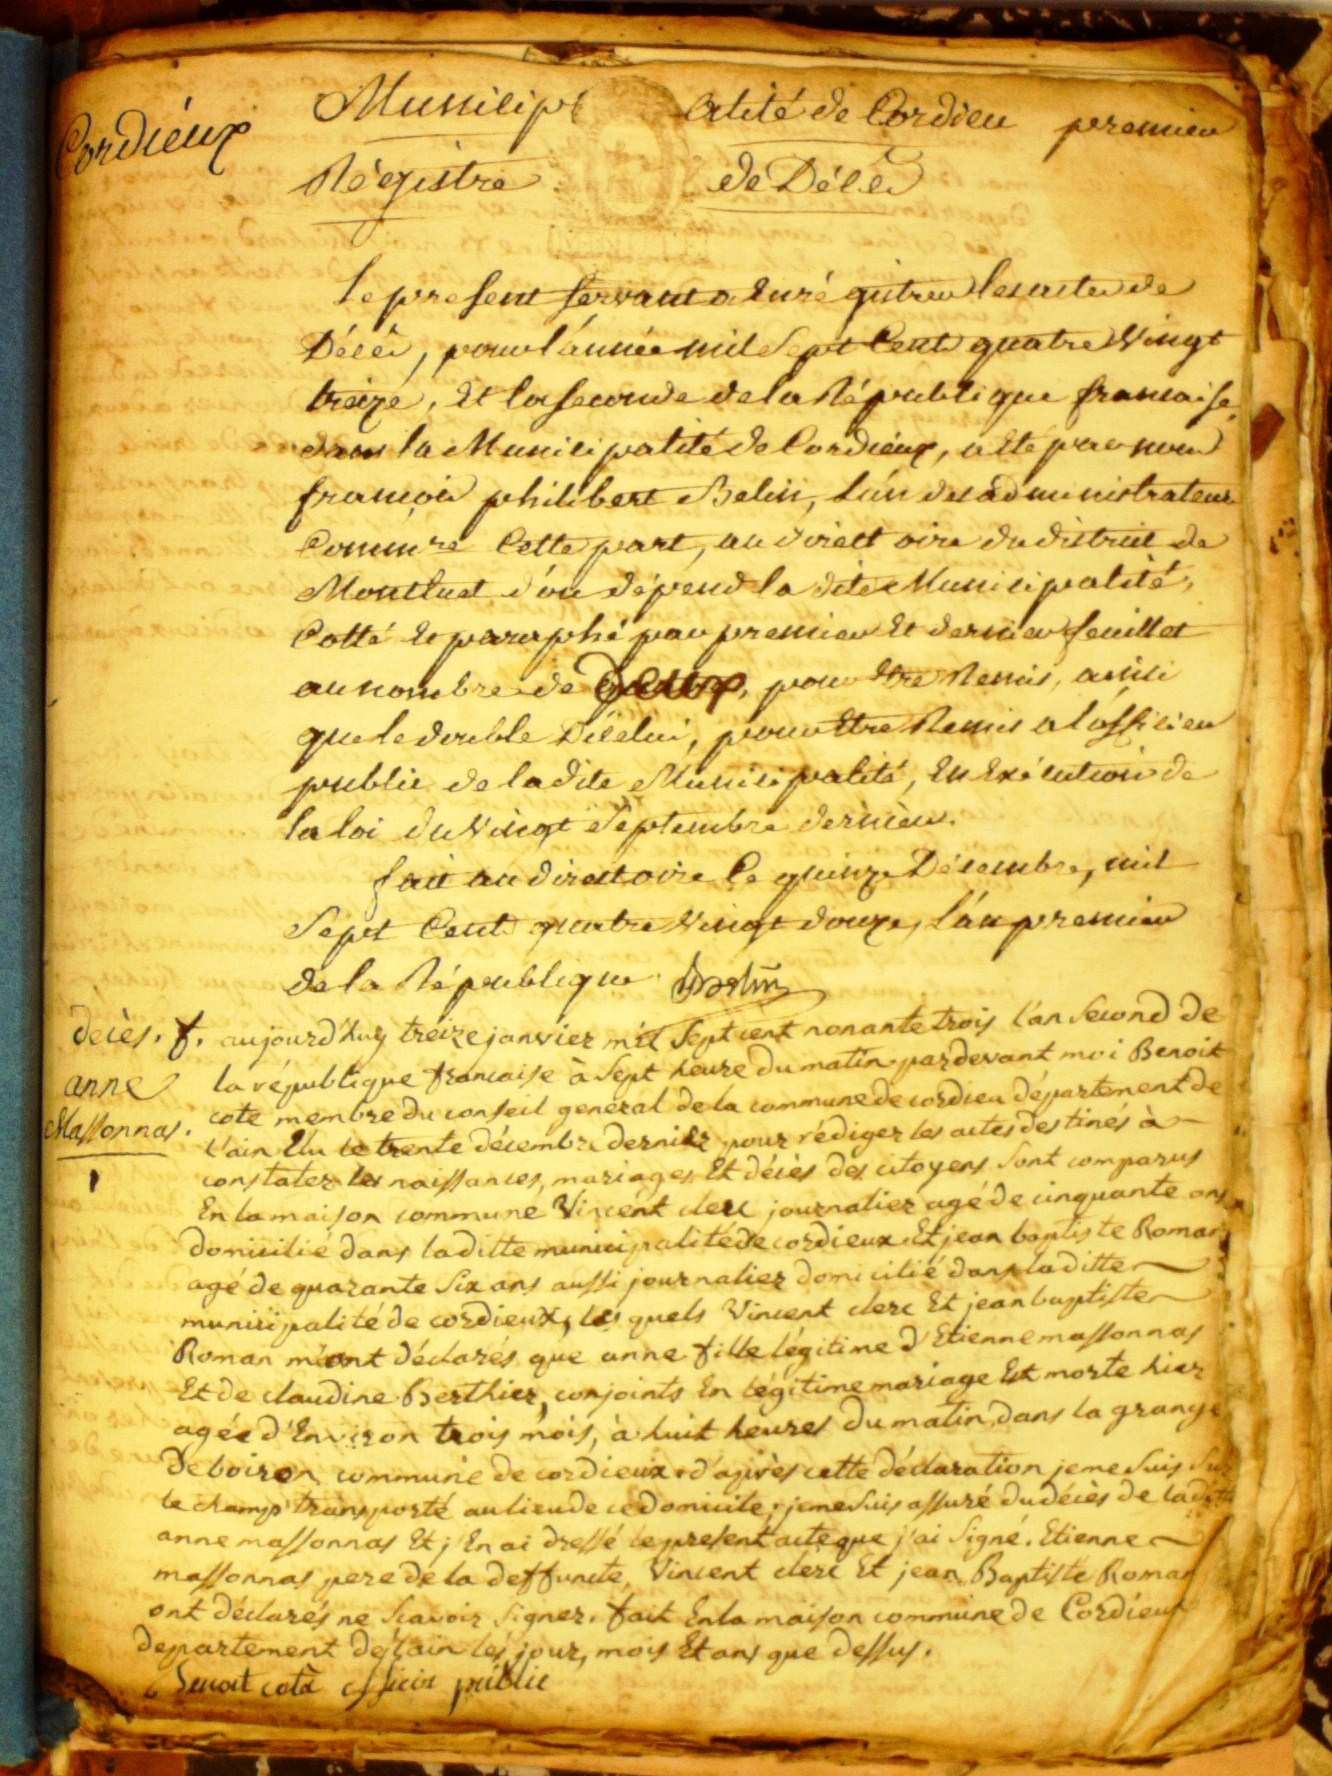 Cordiéux
Municipalité de Cordieu premier
Régistre de Décès
Le present servant a Enrégistrer les actes de
Décès, pour l'année mil Sept Cent quatre Vingt
treize, Et la seconde de la République francaise
dans la Municipalité de Cordieux, a été par nous
francois philibert Belin, l'un des administrateurs
Commire Cette part, au directoire du district de
Montluel d'ou dépend la dite Municipalité,
Cotté Et paraphé par premier Et dernier feuillet
au nombre de deux, pour être Remis, ainsi
que le double Dicelui, pour Etre Remis a l'officier
public de la dite Municipalité, En Exécution de
la loi du Vingt Septembre dernier.
fait au directoire Ce quinze Décembre, mil
Sept Cent quatre Vingt douze, l'an premier
de la République Belin
décès. f.
anne
Massonnas.
1
aujourd'huy treize janvier mil Sept cent nonante trois l'an Second de
la république francaise à Sept heure du matin pardevant moi Benoit
cote membre du conseil general de la commune de cordieu département de
l'ain Elu le trente décembre dernier pour rédiger les actes destinés à
constater les naissances, mariages, Et décès des citoyens Sont comparus
En la maison commune Vincent clerc journalier agé de cinquante ans
domicilié dans la ditte municipalité de cordieux Et jean baptiste Roman
agé de quarante Six ans aussi journalier domicilié dans la ditte
municipalité de cordieux, les quels Vincent clerc Et jean baptiste
Roman m'ont déclarés que anne fille légitime d'Etienne massonnas
Et de claudine Berthier, conjoints En légitime mariage Est morte hier
agée d'Environ trois mois, à huit heures du matin dans la grange
de boiron commune de cordieux. d'après cette déclaration je me Suis Sur
le champ transporté au lieu de ce domicile, je me Suis assuré du décès de la ditte
anne massonnas Et j'En ai dressé le present acte que j'ai Signé. Etienne
massonnas pere de la deffuncte, Vincent clerc Et jean Baptiste Roman
ont déclarés ne Scavoir Signer. fait En la maison commune de Cordieux
departement de l'ain les jour, mois Et ans que dessus.
Benoit cota officier public